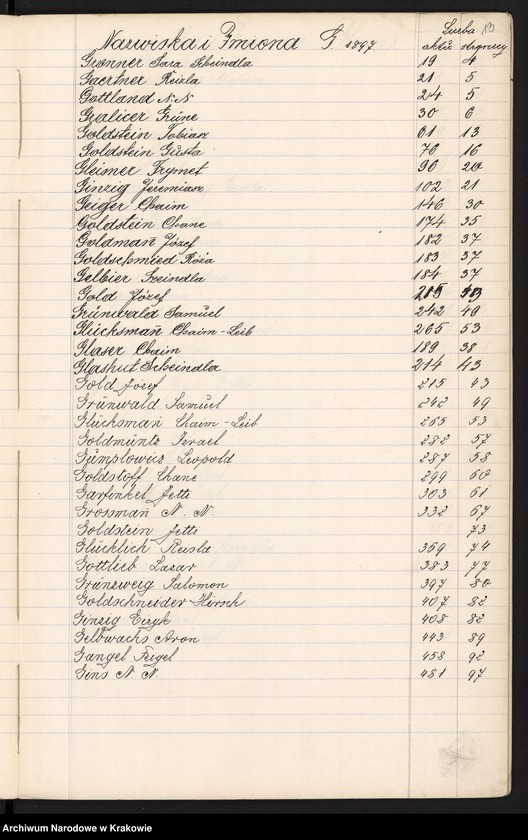 Liczba 13
Nazwiska i Imiona G 1897 aktu stronicy
Gronner Sara Scheindla 19 4
Gaertner Reizla 21 5
Gottland N.N 24 5
Gralicer Grüne 30 6
Goldstein Tobiasz 61 13
Goldstein Gusta 76 16
Gleimer Frymet 96 20
Ginzig Jeremiasz 102 21
Geiger Chaim 146 30
Goldstein Chane 174 35
Goldmañ Józef 182 37
Goldschmied Róża 183 37
Gelbier Szeindla 184 37
Gold Józef 215 43
Grünwald Samuel 242 49
Glücksmañ Chaim-Leib 265 53
Glaser Chaim 189 38
Glashut Scheindla 214 43
Gold Józef 215 43
Grünwald Samuel 242 49
Glücksmañ Chaim-Leib 265 53
Goldmüntz Israel 282 57
Gumplowicz Leopold 287 58
Goldstoff Chane 299 60
Garfinkel Jetti 303 61
Grossmañ N. N. 332 67
Goldstein Jetti 73
Glücklich Reisla 369 74
Gottlieb Lazar 383 77
Grünzweig Salomon 397 80
Goldschneider Hirsch 407 82
Ginzig Eizyk 408 82
Gelbwachs Aron 443 89
Gangel Feigel 458 92
Gins N N. 481 97
Archiwum Narodowe w Krakowie